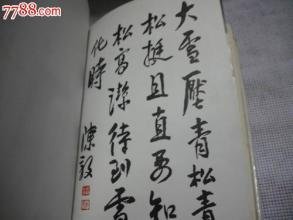 7788.com
大雪壓青松青
松挺且直要知
松高潔待到雪
化時
陳毅